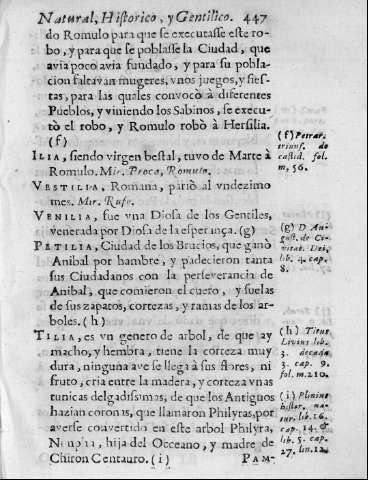 Natural, Historico, y Gentilico. 447
do Romulo para que se executasse este ro-
bo, y para que se poblasse la Ciudad, que
avia poco avia fundado, y para su pobla-
cion faltavan mugeres, vnos juegos, y fies-
tas, para las quales convocò à diferentes
Pueblos, y viniendo los Sabinos, se execu-
tò el robo, y Romulo robò à Hersilia.
(f)
ILIA, siendo virgen bestal, tuvo de Marte à
Romulo. Mir. Proca, Romulo.
VESTILIA, Romana, pariò al vndezimo
mes. Mir. Rufo.
VENILIA, fue vna Diosa de los Gentiles,
venerada por Diosa de la esperança. (g)
PETILIA, Ciudad de los Brucios, que ganò
Anibal por hambre, y padecieron tanta
sus Ciudadanos con la perseverancia de
Anibal, que comieron el cuero, y suelas
de sus zapatos, cortezas, y ramas de los ar-
boles. (h)
TILIA, es vn genero de arbol, de que ay
macho, y hembra, tiene la corteza muy
dura, ninguna ave se llega à sus flores, ni
fruto, cria entre la madera, y corteza vnas
tunicas delgadissimas, de que los Antiguos
hazian coronas, que llamaron Philyras, por
averse convertido en este arbol Philyra,
Ninpha, hija del Occeano, y madre de
Chiron Centauro. (i) PAM-
(f) Petrar.
triunf. de
castid. fol.
m, 56.
(g) D. Au-
gust. de Ci-
vitat. Dei,
lib. 4. cap.
8.
(h) Titus
Livius lib.
3. decada
3. cap. 9.
fol. m. 210.
(i) Plinius
histor. na-
tur. lib. 16.
cap. 14. &
lib. 5. cap.
27. lin. 12.